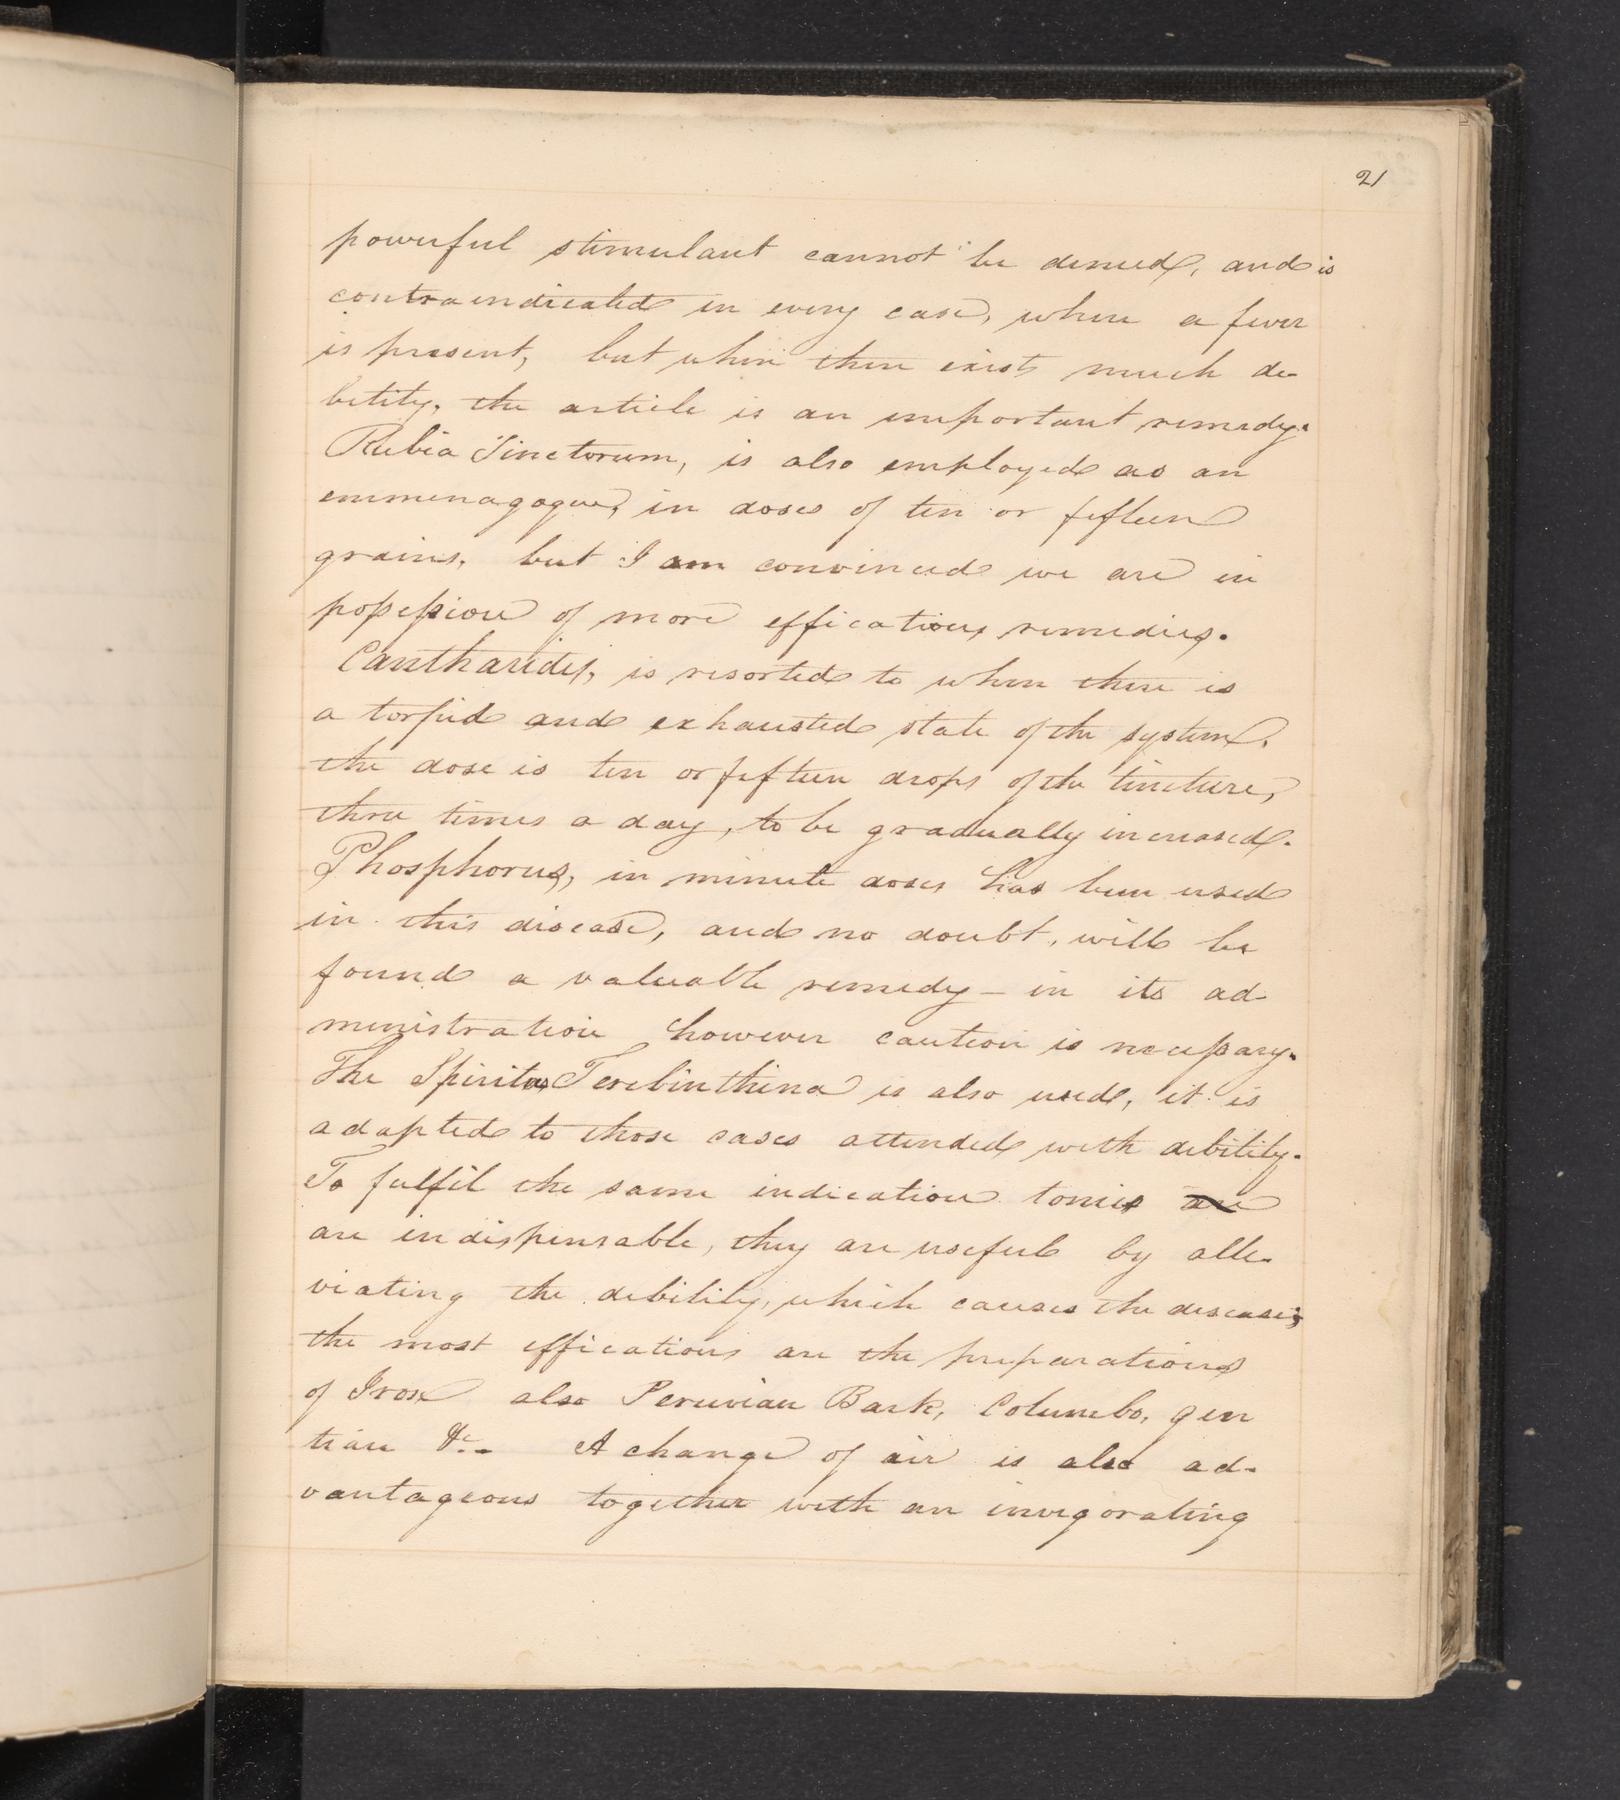 21
powerful stimulant cannot be denied, and is
contraindicated in every case, where a fever
is present, but when there exists much de-
bility, the article is an important remedy.
Rubia Tinctorum, is also employed as an
emmenagogue, in doses of ten or fifteen
grains, but I am convinced we are in
possession of more efficatious remedies.
Cantharides, is resorted to when there is
a torpid and exhausted state of the system,
the dose is ten or fifteen drops of the tincture,
three times a day, to be gradually increased.
Phosphorus, in minute doses has been used
in this disease, and no doubt, will be
found a valuable remedy – in its ad-
ministration however caution is necessary.
The Spiritus Terebinthina is also used, it is
adapted to those cases attended with debility.
To fulfil the same indication tonics are
are indispensable, they are useful by alle-
viating the debility, which causes the disease;
the most efficatious are the preparations
of Iron also Peruvian Bark, Columbo, gen
tian &c. – A change of air is also ad-
vantageous together with an invigorating